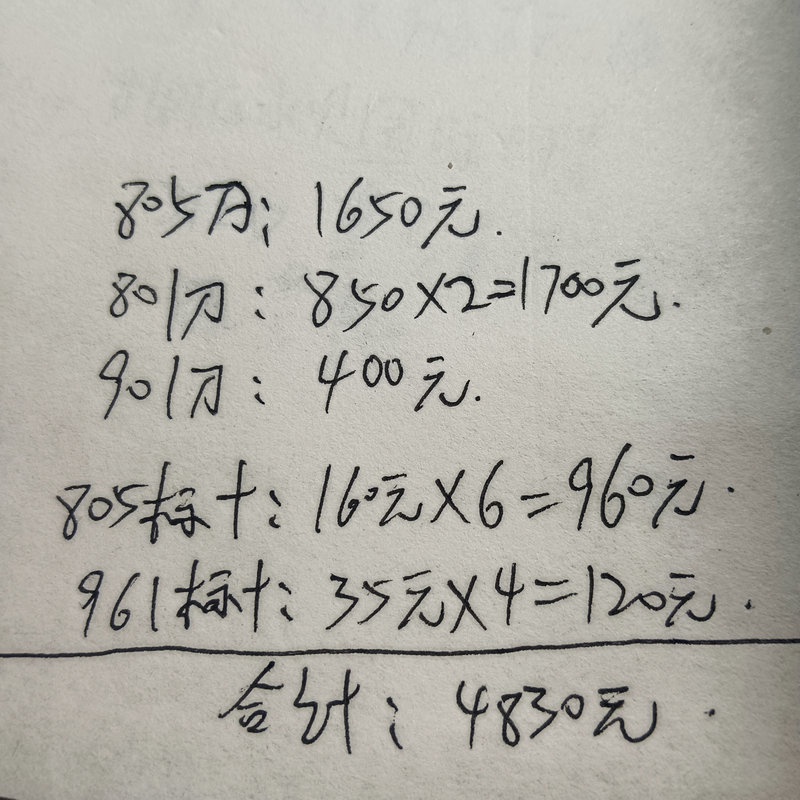 805刀: 1650元.
801刀: 850×2=1700元.
901刀: 400元.
805标十: 160元×6=960元.
961标十: 35元×4=120元.
合计: 4830元.